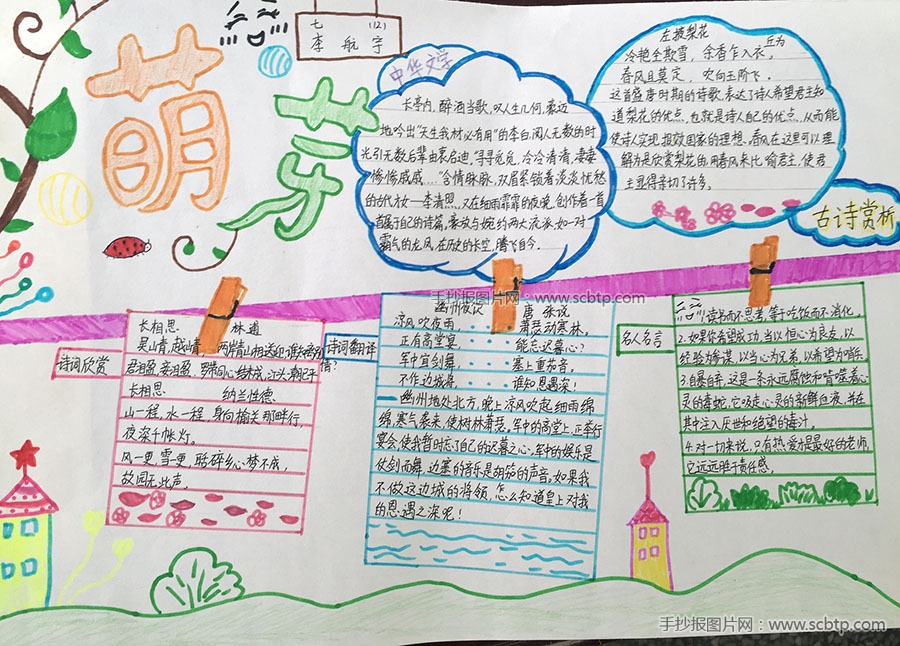 萌芽
七 (12)
李航宇
中华文学
长亭内,醉酒当歌,叹人生几何,豪迈
地吟出“天生我材必有用”的李白,阅人无数的时
光引无数后辈由衷启迪,“寻寻觅觅,冷冷清清,凄凄
惨惨戚戚……”含情脉脉,双眉紧锁着淡淡忧愁
的古代才女—李清照,又在细雨霏霏的夜晚,创作着一首
首属于自己的诗篇,豪放与婉约两大流派,如一对
霸气的龙凤,在历史的长空,腾飞自今.
左掖梨花
丘为
冷艳全欺雪,余香乍入衣,
春风且莫定,吹向玉阶飞.
这首盛唐时期的诗歌,表达了诗人希望君主知
道梨花的优点,也就是诗人自己的优点,从而能
使诗人实现报效国家的理想.春风在这里可以理
解为是欣赏梨花的,用春风来比喻君主,使君
主显得亲切了许多.
古诗赏析
诗词欣赏
长相思 林逋
吴山青,越山青,两岸青山相送迎,谁知离别情?
君泪盈,妾泪盈,罗带同心结未成,江头潮已平
长相思 纳兰性德
山一程,水一程,身向榆关那畔行,
夜深千帐灯.
风一更,雪一更,聒碎乡心梦不成,
故园无此声.
诗词翻译
幽州夜饮 唐 张说
凉风吹夜雨, 萧瑟动寒林,
正有高堂宴, 能忘迟暮心?
军中宜剑舞, 塞上重笳音,
不作边城将, 谁知恩遇深!
幽州地处北方,晚上凉风吹起细雨绵
绵,寒气袭来,使树林萧瑟,军中的高堂上,正举行
宴会使我暂时忘了自己的迟暮之心,军中的娱乐是
仗剑而舞,边塞的音乐是胡笳的声音,如果我
不做这边城的将领,怎么知道皇上对我
的恩遇之深呢!
名人名言
读书而不思考,等于吃饭而不消化,
2.如果你希望成功,当以恒心为良友,以
经验为参谋,以当心为兄弟,以希望为哨兵
3.自暴自弃,这是一条永远腐蚀和啃噬着心
灵的毒蛇,它吸走心灵的新鲜血液,并在
其中注入厌世和绝望的毒汁.
4.对一切来说,只有热爱才是最好的老师,
它远远胜于责任感.
手抄报图片网:www.scbtp.com
手抄报图片网:www.scbtp.com